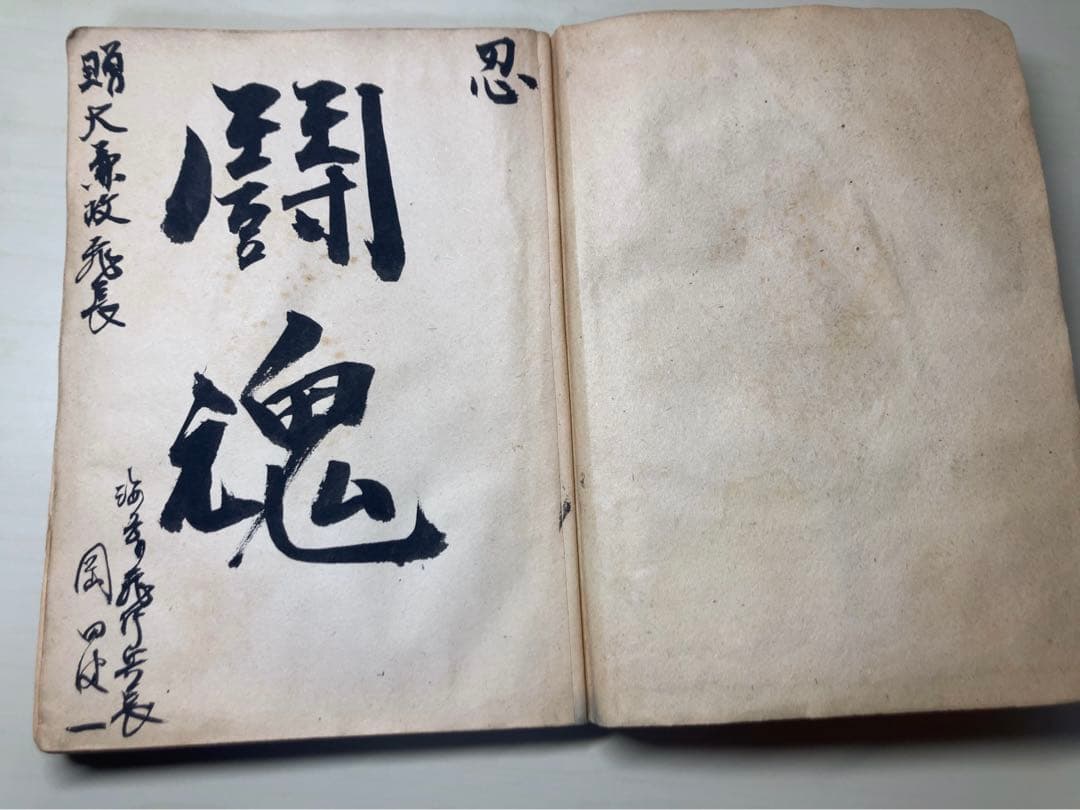 忍
鬪魂
贈大兼政飛長
海軍飛行兵長
岡田一